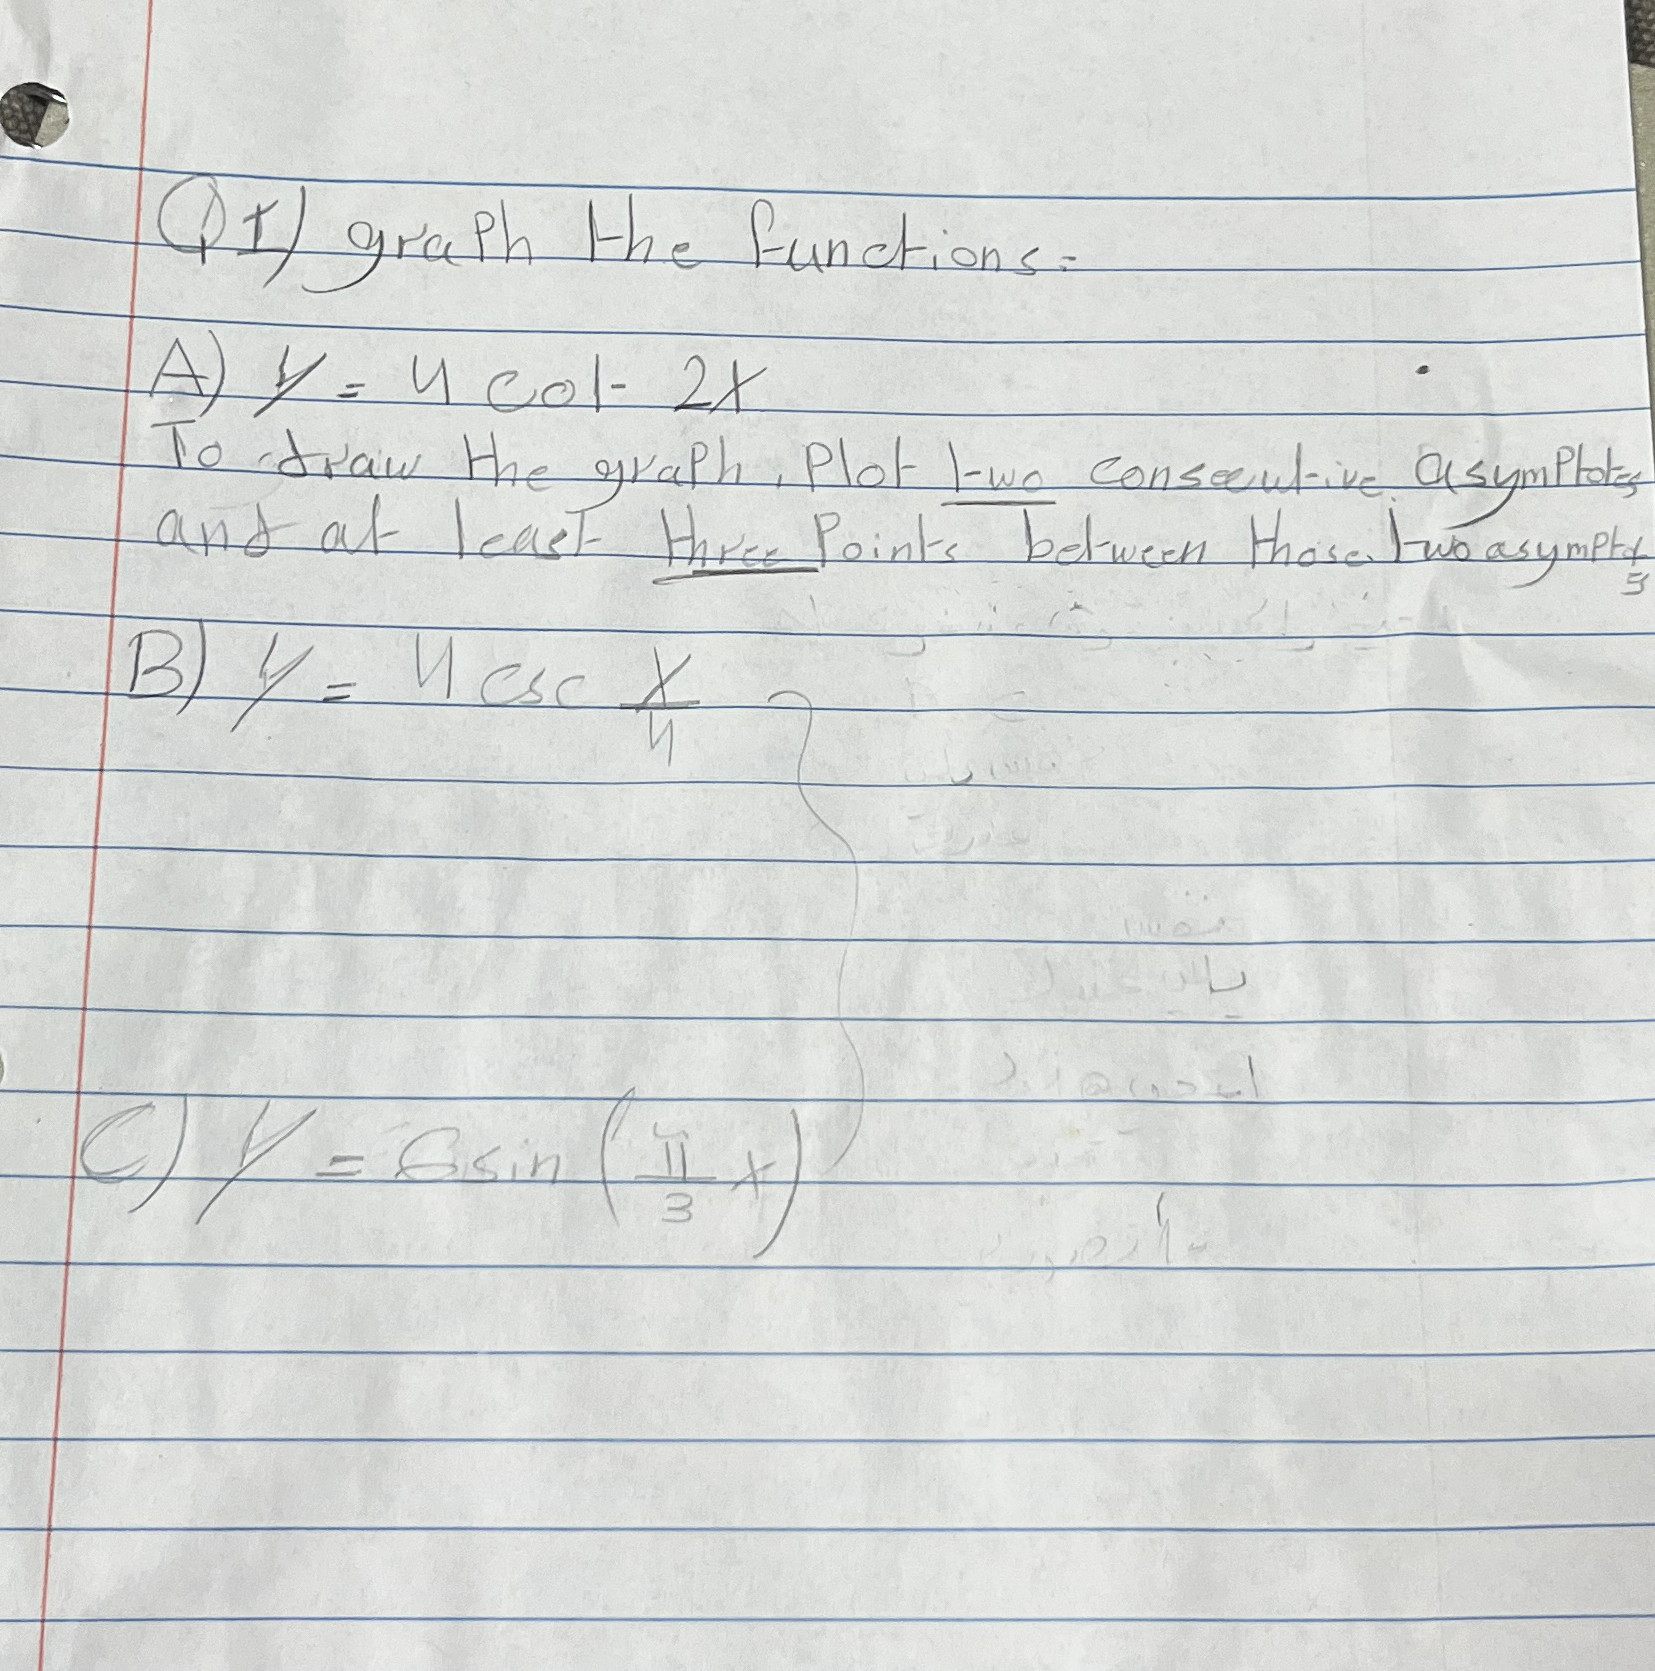 Q1) graph the functions:
A) y = 4 cot 2x
To draw the graph, Plot two consecutive asymptotes
and at least three Points between those two asymptots
B) y = 4 csc x/4
C) y = 6 sin (π/3 x)